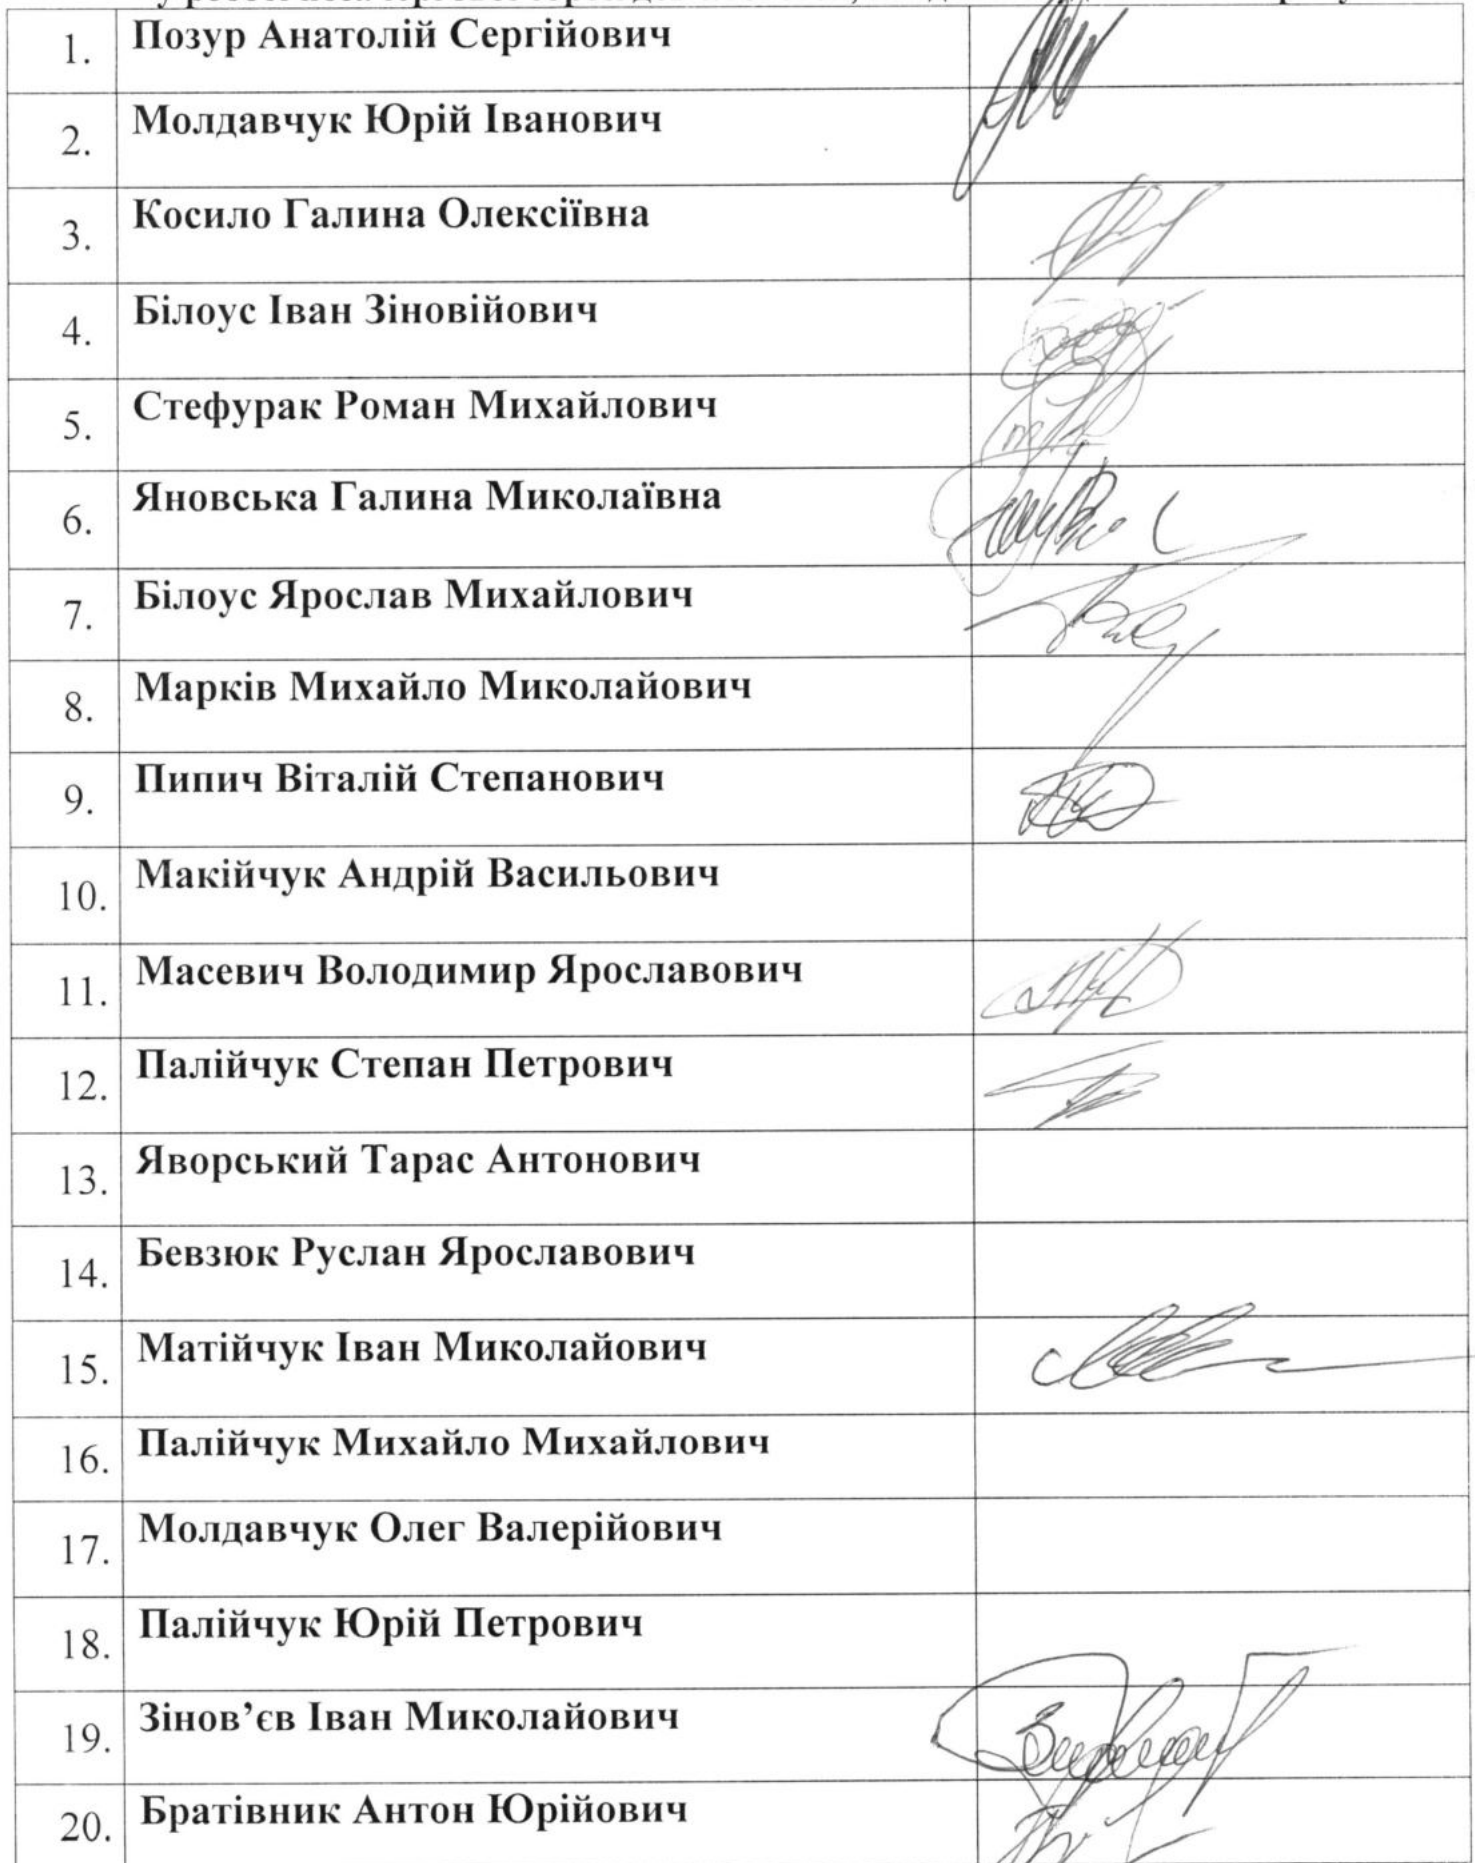 1. Позур Анатолій Сергійович
2. Молдавчук Юрій Іванович
3. Косило Галина Олексіївна
4. Білоус Іван Зіновійович
5. Стефурак Роман Михайлович
6. Яновська Галина Миколаївна
7. Білоус Ярослав Михайлович
8. Марків Михайло Миколайович
9. Пипич Віталій Степанович
10. Макійчук Андрій Васильович
11. Масевич Володимир Ярославович
12. Палійчук Степан Петрович
13. Яворський Тарас Антонович
14. Бевзюк Руслан Ярославович
15. Матійчук Іван Миколайович
16. Палійчук Михайло Михайлович
17. Молдавчук Олег Валерійович
18. Палійчук Юрій Петрович
19. Зінов’єв Іван Миколайович
20. Братівник Антон Юрійович